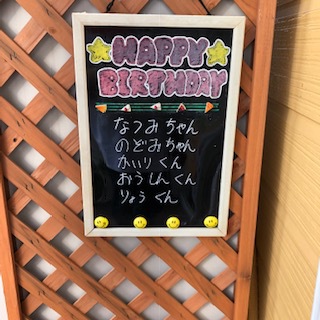 HAPPY
BIRTHDAY
なつみちゃん
のどみちゃん
かいりくん
おうしんくん
りょうくん